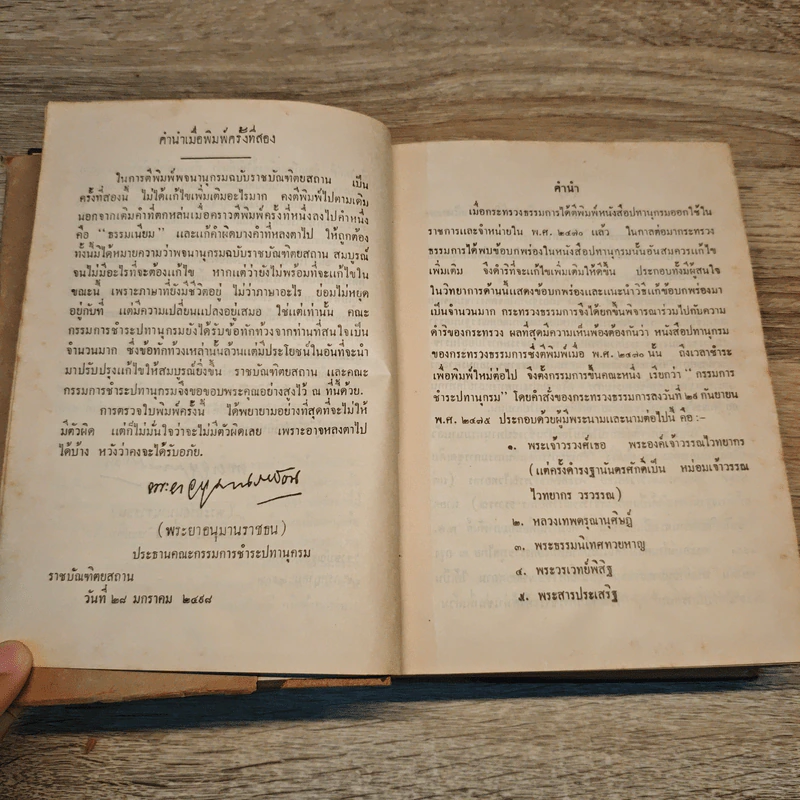 คำนำเมื่อพิมพ์ครั้งที่สอง
ในการตีพิมพ์พจนานุกรมฉบับราชบัณฑิตยสถาน เป็น
ครั้งที่สองนี้ ไม่ได้แก้ไขเพิ่มเติมอะไรมาก คงตีพิมพ์ไปตามเดิม
นอกจากเติมคำที่ตกหล่นเมื่อคราวตีพิมพ์ครั้งที่หนึ่งลงไปคำหนึ่ง
คือ "ธรรมเนียม" และแก้คำผิดบางคำที่หลงตาไป ให้ถูกต้อง
ทั้งนี้มิได้หมายความว่าพจนานุกรมฉบับราชบัณฑิตยสถาน สมบูรณ์
จนไม่มีอะไรที่จะต้องแก้ไข หากแต่ว่ายังไม่พร้อมที่จะแก้ไขใน
ขณะนี้ เพราะภาษาที่ยังมีชีวิตอยู่ ไม่ว่าภาษาอะไร ย่อมไม่หยุด
อยู่กับที่ แต่มีความเปลี่ยนแปลงอยู่เสมอ ใช่แต่เท่านั้น คณะ
กรรมการชำระปทานุกรมยังได้รับข้อทักท้วงจากท่านที่สนใจเป็น
จำนวนมาก ซึ่งข้อทักท้วงเหล่านั้นล้วนแต่มีประโยชน์ในอันที่จะนำ
มาปรับปรุงแก้ไขให้สมบูรณ์ยิ่งขึ้น ราชบัณฑิตยสถาน และคณะ
กรรมการชำระปทานุกรมจึงขอขอบพระคุณอย่างสูงไว้ ณ ที่นี้ด้วย.
การตรวจใบพิมพ์ครั้งนี้ ได้พยายามอย่างที่สุดที่จะไม่ให้
มีตัวผิด แต่ก็ไม่มั่นใจว่าจะไม่มีตัวผิดเลย เพราะอาจหลงตาไป
ได้บ้าง หวังว่าคงจะได้รับอภัย.
(พระยาอนุมานราชธน)
ประธานคณะกรรมการชำระปทานุกรม
ราชบัณฑิตยสถาน
วันที่ ๒๘ มกราคม ๒๔๙๘
คำนำ
เมื่อกระทรวงธรรมการได้ตีพิมพ์หนังสือปทานุกรมออกใช้ใน
ราชการและจำหน่ายใน พ.ศ. ๒๔๗๐ แล้ว ในกาลต่อมากระทรวง
ธรรมการได้พบข้อบกพร่องในหนังสือปทานุกรมนั้นอันสมควรแก้ไข
เพิ่มเติม จึงดำริที่จะแก้ไขเพิ่มเติมให้ดีขึ้น ประกอบทั้งมีผู้สนใจ
ในวิทยาการด้านนี้แสดงข้อบกพร่องและแนะนำวิธีแก้ข้อบกพร่องมา
เป็นจำนวนมาก กระทรวงธรรมการจึงได้ยกขึ้นพิจารณาร่วมไปกับความ
ดำริของกระทรวง ผลที่สุดมีความเห็นพ้องต้องกันว่า หนังสือปทานุกรม
ของกระทรวงธรรมการซึ่งตีพิมพ์เมื่อ พ.ศ. ๒๔๗๐ นั้น ถึงเวลาชำระ
เพื่อพิมพ์ใหม่ต่อไป จึงตั้งกรรมการขึ้นคณะหนึ่ง เรียกว่า "กรรมการ
ชำระปทานุกรม" โดยคำสั่งของกระทรวงธรรมการลงวันที่ กันยายน
พ.ศ. ๒๔๗๕ ประกอบด้วยผู้มีพระนามและนามต่อไปนี้ คือ :-
๑. พระเจ้าวรวงศ์เธอ พระองค์เจ้าวรรณไวทยากร
(แต่ครั้งดำรงฐานันดรศักดิ์เป็น หม่อมเจ้าวรรณ
ไวทยากร วรวรรณ)
๒. หลวงเทพดรุณานุศิษฎ์
๓. พระธรรมนิเทศทวยหาญ
๔. พระวรเวทย์พิสิฐ
๕. พระสารประเสริฐ